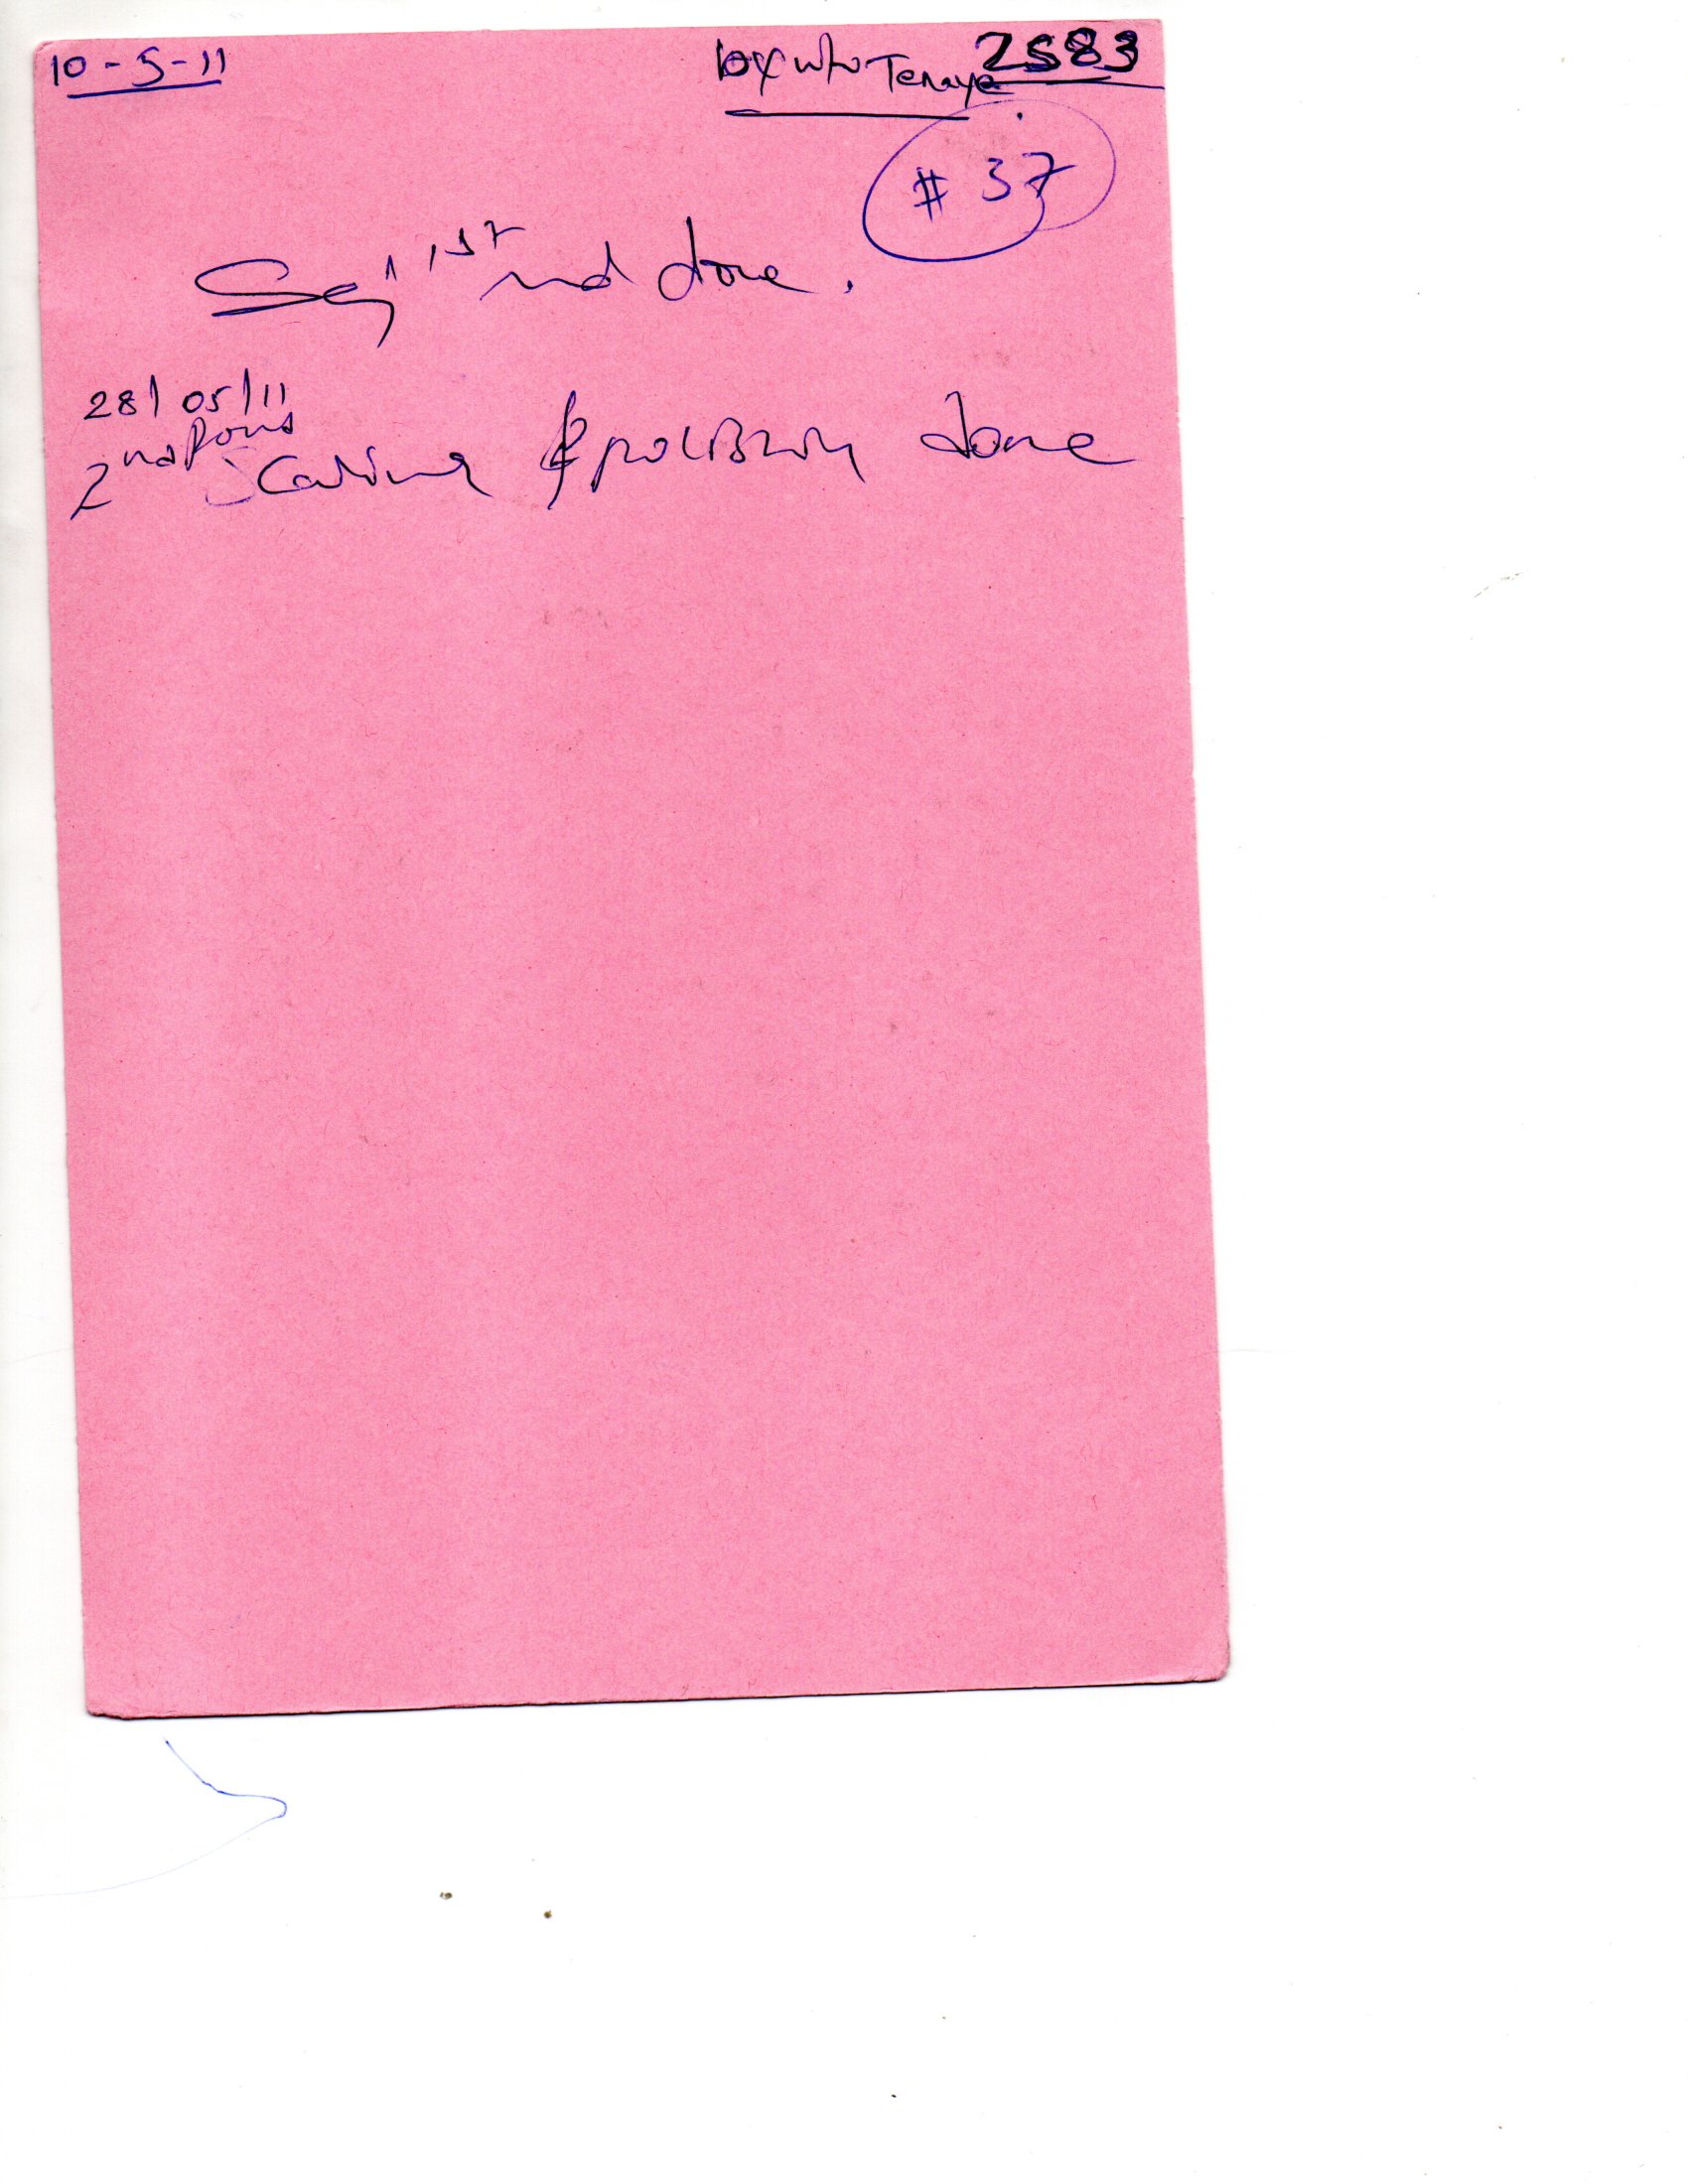 10-5-11
Tenaye 2583
# 37
1st done.
28/05/11
2nd
Scaling & polishing done